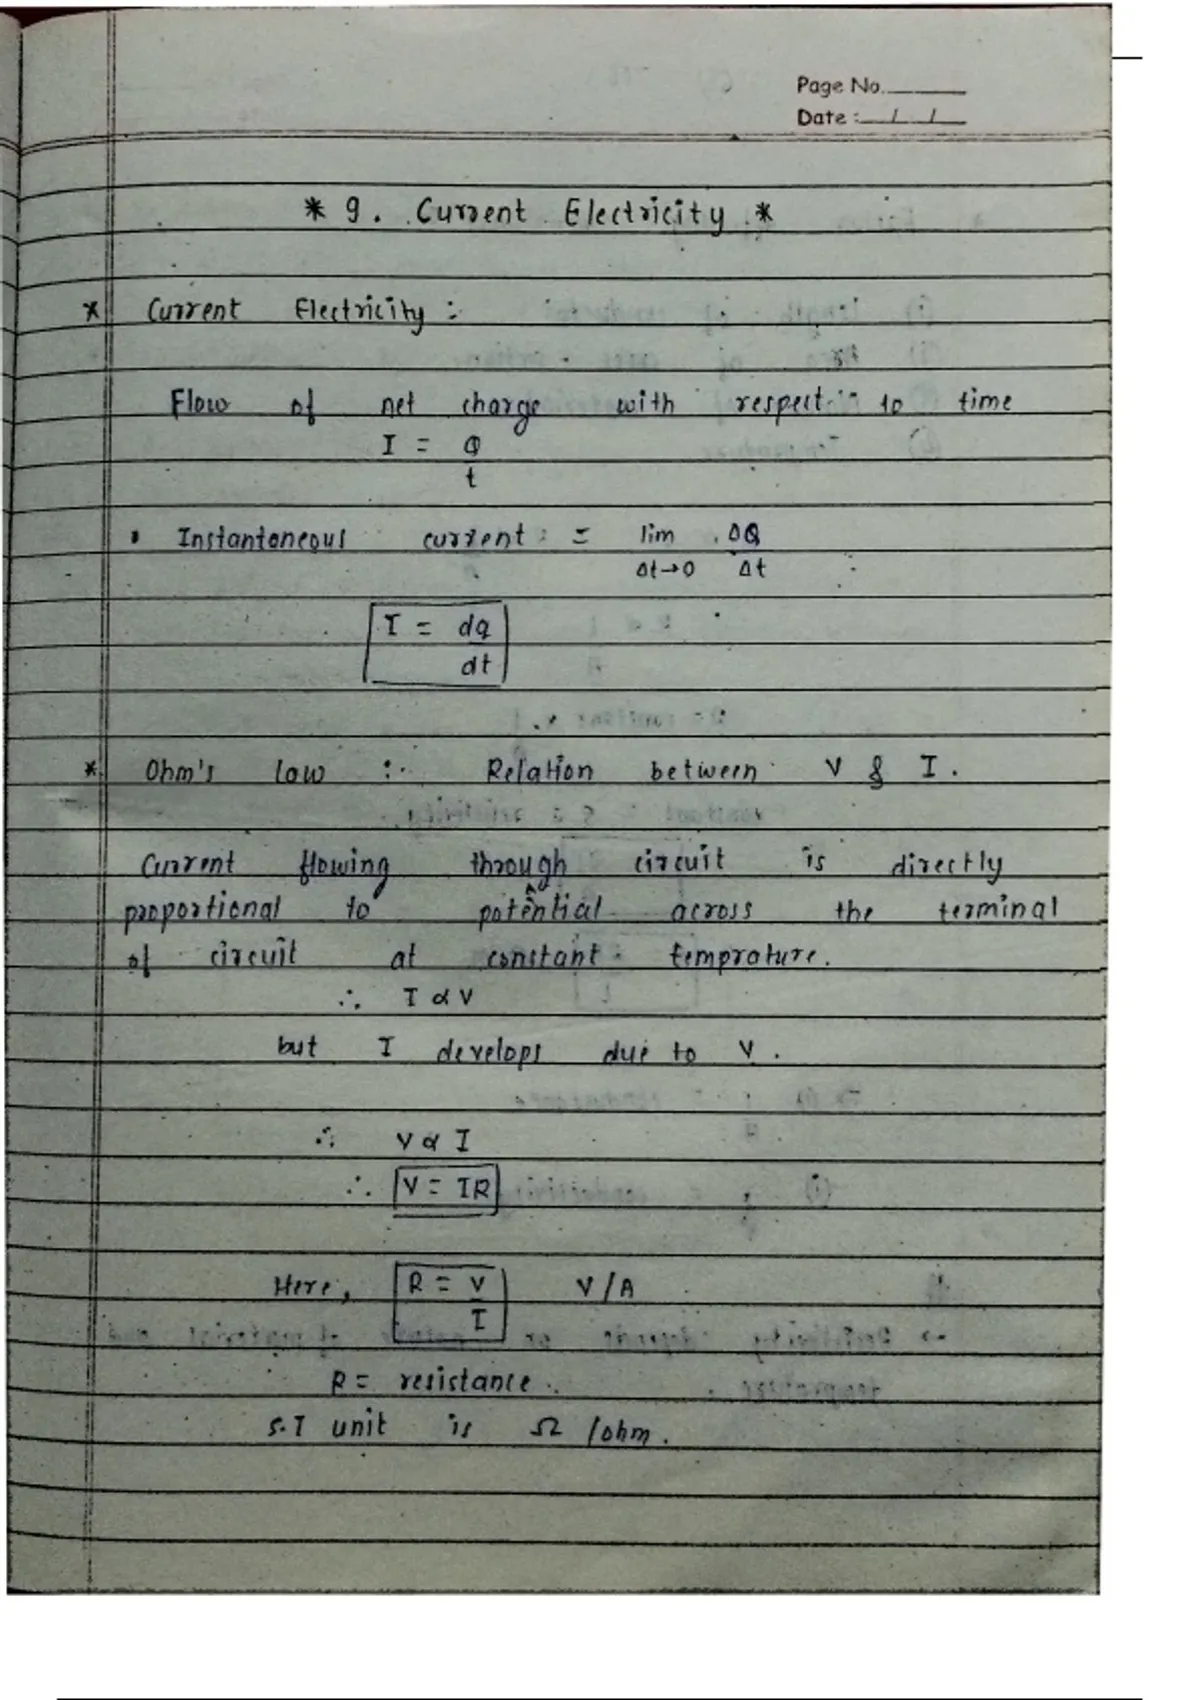 Page No.
Date : / /
* 9. Current Electricity *
* Current Electricity :
Flow of net charge with respect to time
I = Q
t
• Instantaneous current = lim ΔQ
Δt→0 Δt
I = dq
dt
* Ohm's law :- Relation between V & I.
Current flowing through circuit is directly
proportional to potential across the terminal
of circuit at constant temprature.
∴ I α V
but I develops due to V.
∴ V α I
∴ V = IR
Here, R = V V/A
I
R = resistance.
S.I unit is Ω /ohm.